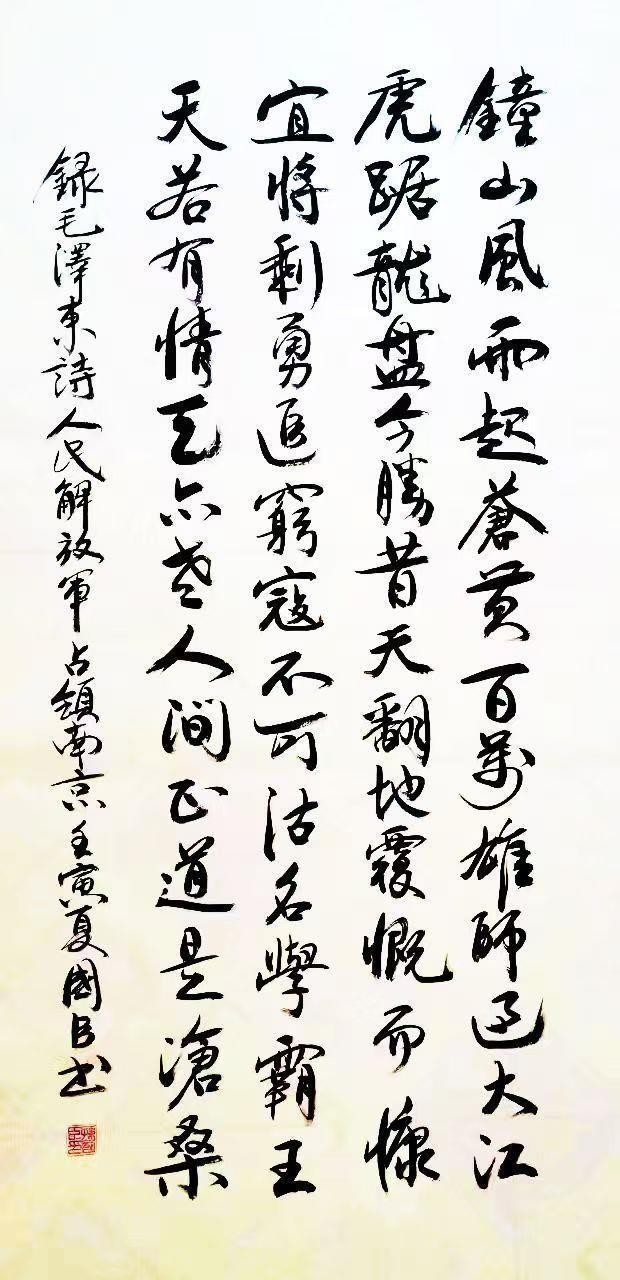 鐘山風雨起蒼黄百萬雄師過大江
虎踞龍盤今勝昔天翻地覆慨而慷
宜將剩勇追窮寇不可沽名學霸王
天若有情天亦老人間正道是滄桑
録毛澤東詩人民解放軍占領南京壬寅夏國臣书